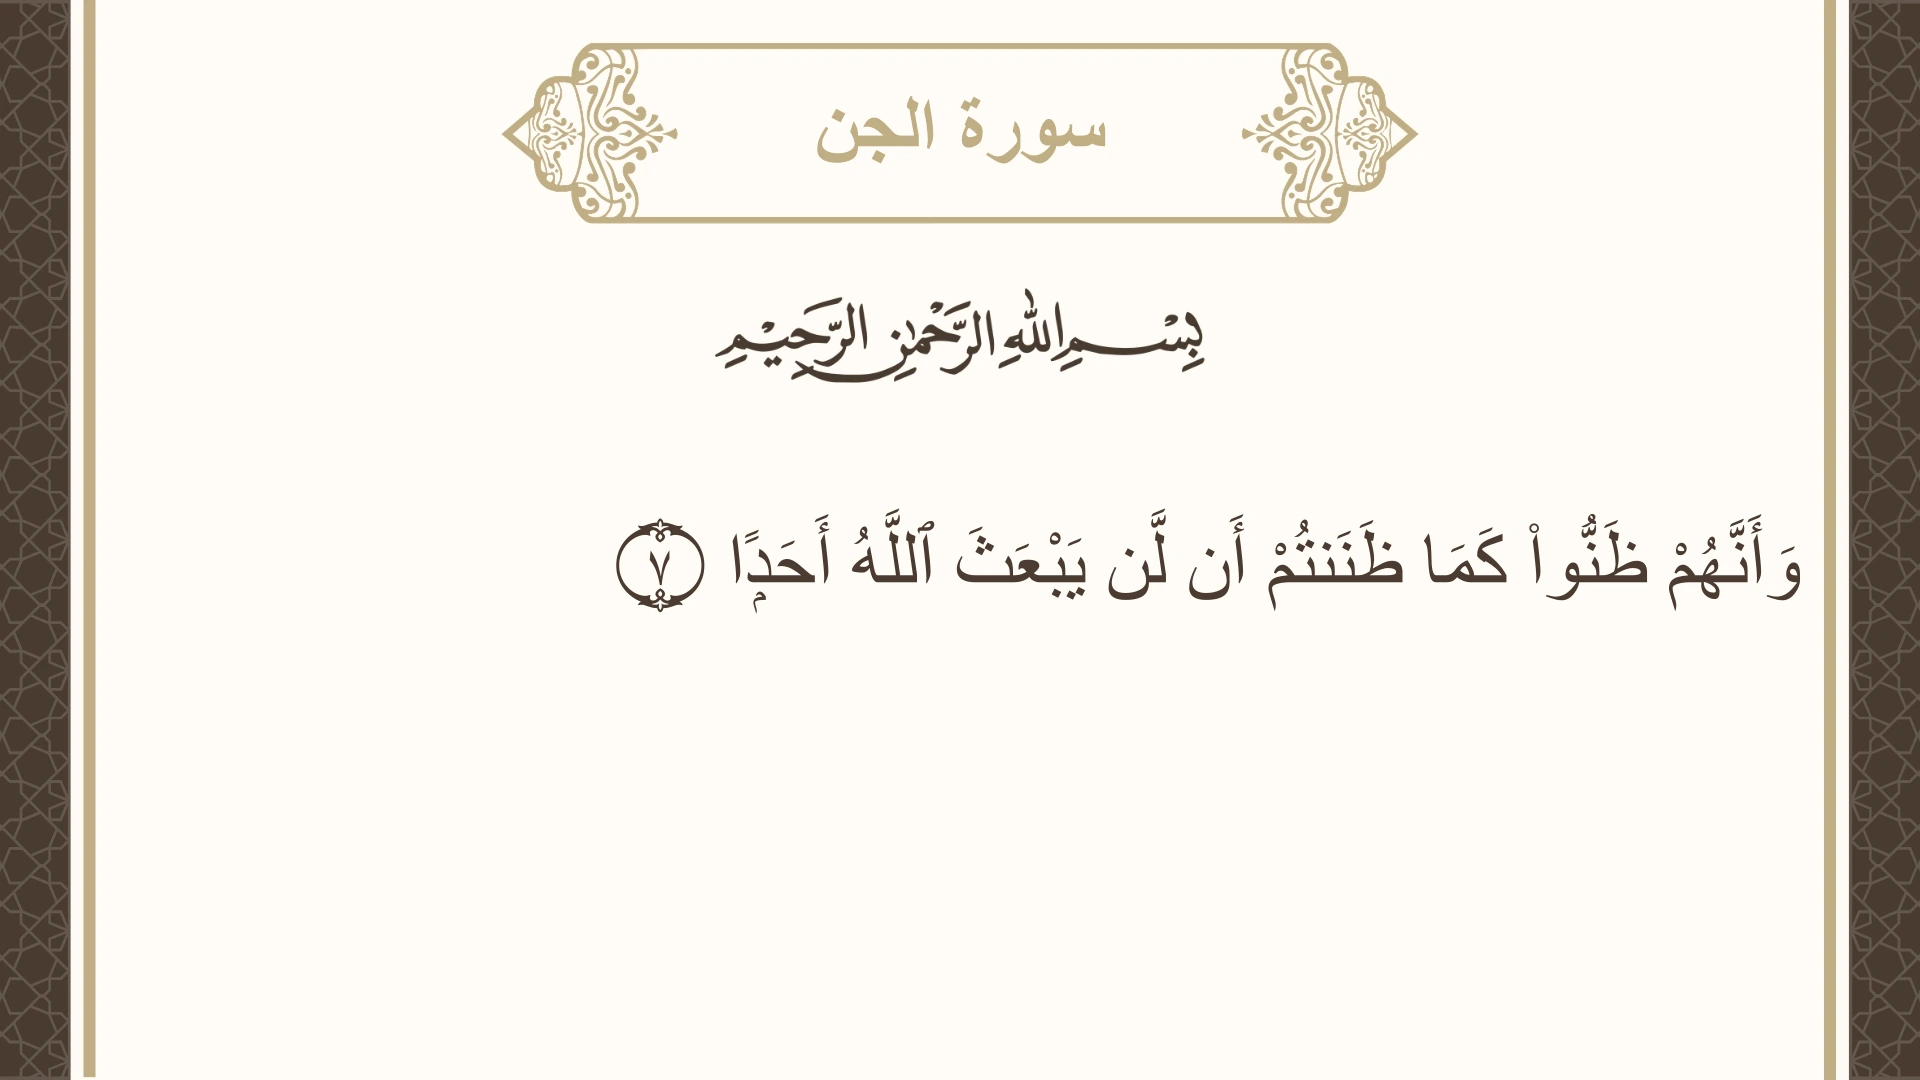 سورة الجن
بِسْمِ اللهِ الرَّحْمٰنِ الرَّحِيْمِ
وَأَنَّهُمْ ظَنُّوا۟ كَمَا ظَنَنتُمْ أَن لَّن يَبْعَثَ ٱللَّهُ أَحَدًۭا ٧